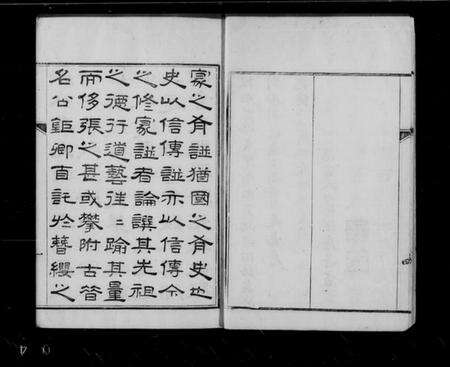 家之有諩猶國之有史也
史以信傳諩亦以信傳今
之修家諩者論譔其先祖
之德行道藝往〻踰其量
而侈張之甚或攀附古昔
名公鉅卿自託於簪纓之